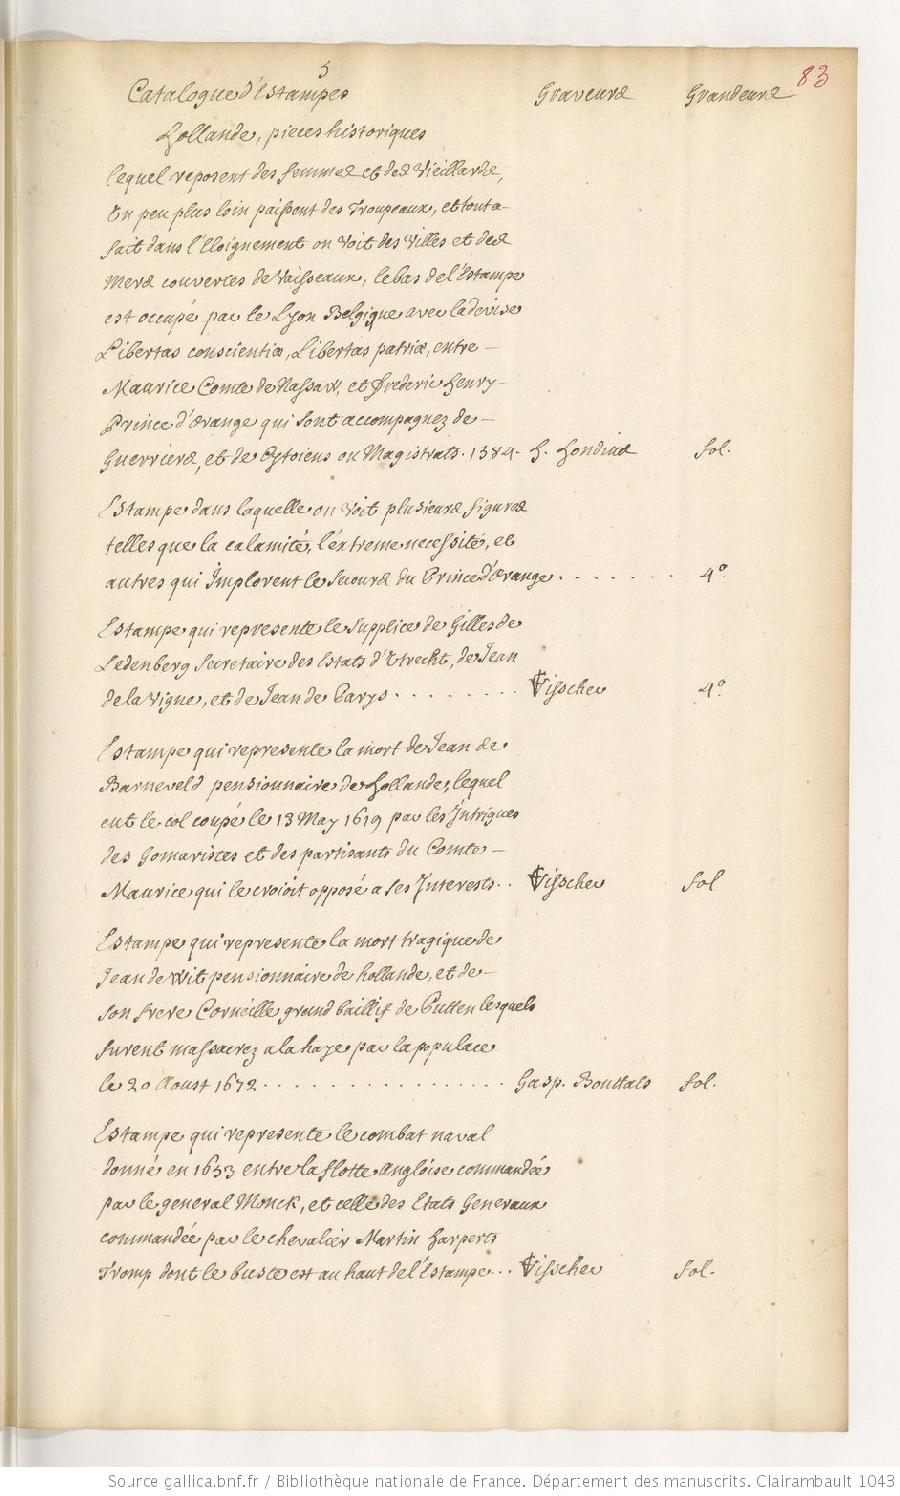 5
83
Catalogue d'Estampes Graveurs Grandeurs
Hollande, pieces historiques
lequel reposent des femmes et des Vieillards,
Un peu plus loin paissent des Troupeaux, et touta-
fait dans l'Eloignement on Voit des Villes et des
Mers couvertes de Vaisseaux, le bas de l'Estampe
est occupé par le Lyon Belgique avec la devise
Libertas conscientiæ, Libertas patriæ, entre
Maurice Comte de Nassaw, et frederic henry
Prince d'Orange qui sont accompagnez de
Guerriers, et de Cytoiens ou Magistrats. 1584. H. Hondius fol.
Estampe dans laquelle on Voit plusieurs figures
telles que la calamité, l'éxtreme necessité, et
autres qui Implorent le secours du Prince d'Orange . . . . . . . 4°
Estampe qui represente le supplice de Gilles de
Ledenberg secretaire des Estats d'Utrecht, de Jean
de la Vigne, et de Jean de Parys . . . . . . . . Visscher 4°
Estampe qui represente la mort de Jean de
Barneveld pensionnaire de hollande, lequel
eut le col coupé le 13 May 1619 par les Intrigues
des Gomaristes et des partisants du Comte
Maurice qui le croioit opposé a ses Interests . . Visscher fol
Estampe qui represente la mort tragique de
Jean de wit pensionnaire de hollande, et de
son frere Corneille grand baillif de Putten lesquels
furent massacrez a la haye par la populace
le 20 Aoust 1672 . . . . . . . . . . . . . . . . Gasp. Bouttats fol.
Estampe qui represente le combat naval
donné en 1653 entre la flotte Angloise commandée
par le general Monck, et celle des Etats Generaux
commandée par le chevalier Martin harperts
Tromp dont le buste est au haut de l'Estampe . . . Visscher fol.
Source gallica.bnf.fr / Bibliothèque nationale de France. Département des manuscrits. Clairambault 1043